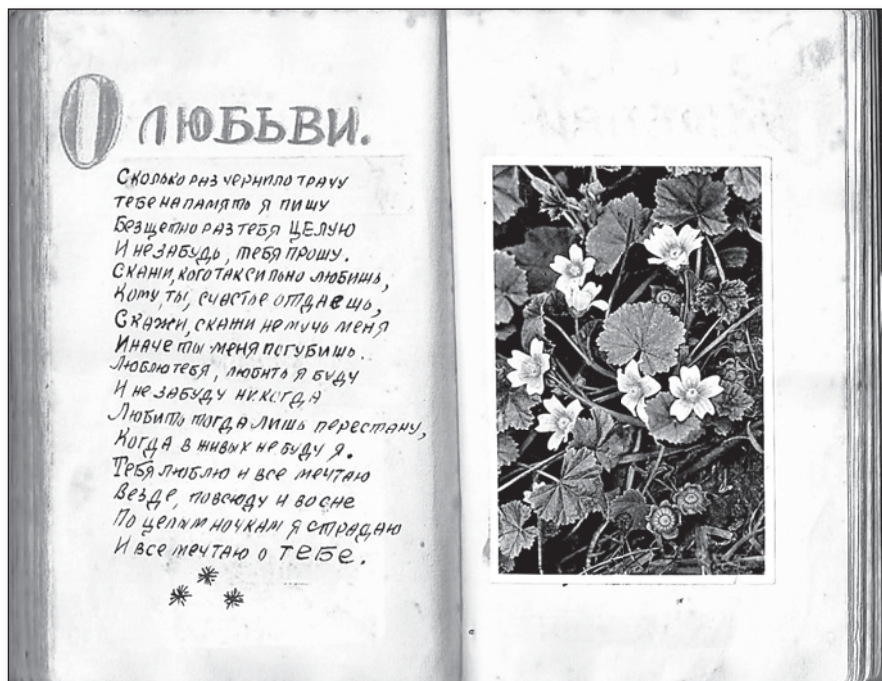 О ЛЮБЬВИ.
Сколько раз чернило трачу
тебе на память я пишу
Безщетно раз тебя ЦЕЛУЮ
И не забудь, тебя прошу.
Скажи, кого так сильно любишь,
Кому, ты, счастье отдаешь,
Скажи, скажи не мучь меня
Иначе ты меня погубишь.
Люблю тебя, любить я буду
И не забуду никогда
Любить тогда лишь перестану,
Когда в живых не буду я.
Тебя люблю и все мечтаю
Везде, повсюду и во сне
По целым ночкам я страдаю
И все мечтаю о ТЕБЕ.